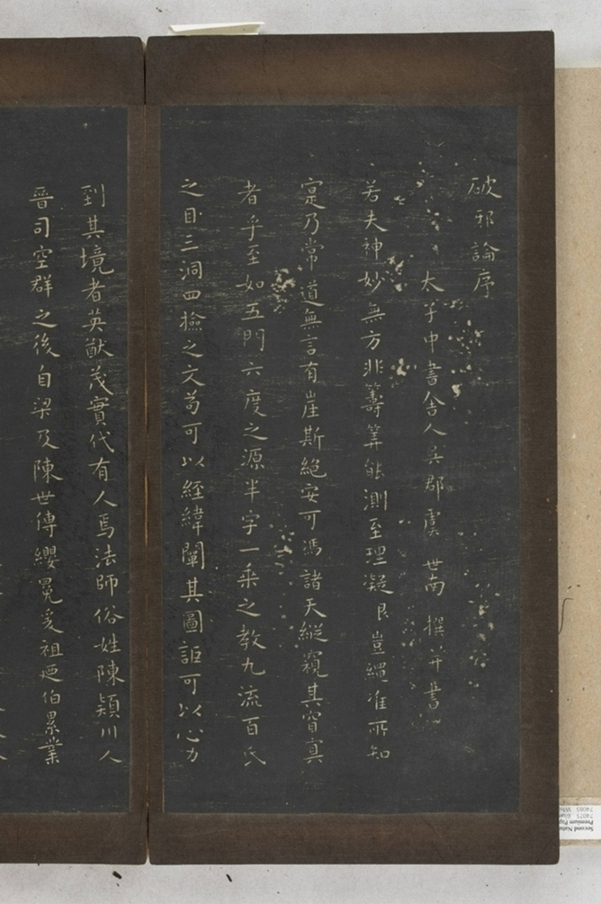 破邪論序
太子中書舍人吳郡虞世南撰并書
若夫神妙無方非籌筭能測至理凝邈豈繩准所知
寔乃常道無言有崖斯絕安可憑諸天縱窺其窅寞
者乎至如五門六度之源半字一乘之教九流百氏
之目三洞四檢之文苟可以經緯闡其圖詎可以心力
到其境者英猷茂實代有人焉法師俗姓陳潁川人
晉司空群之後自梁及陳世傳纓冕爰祖及伯累業
Second Natu
Premium Pap